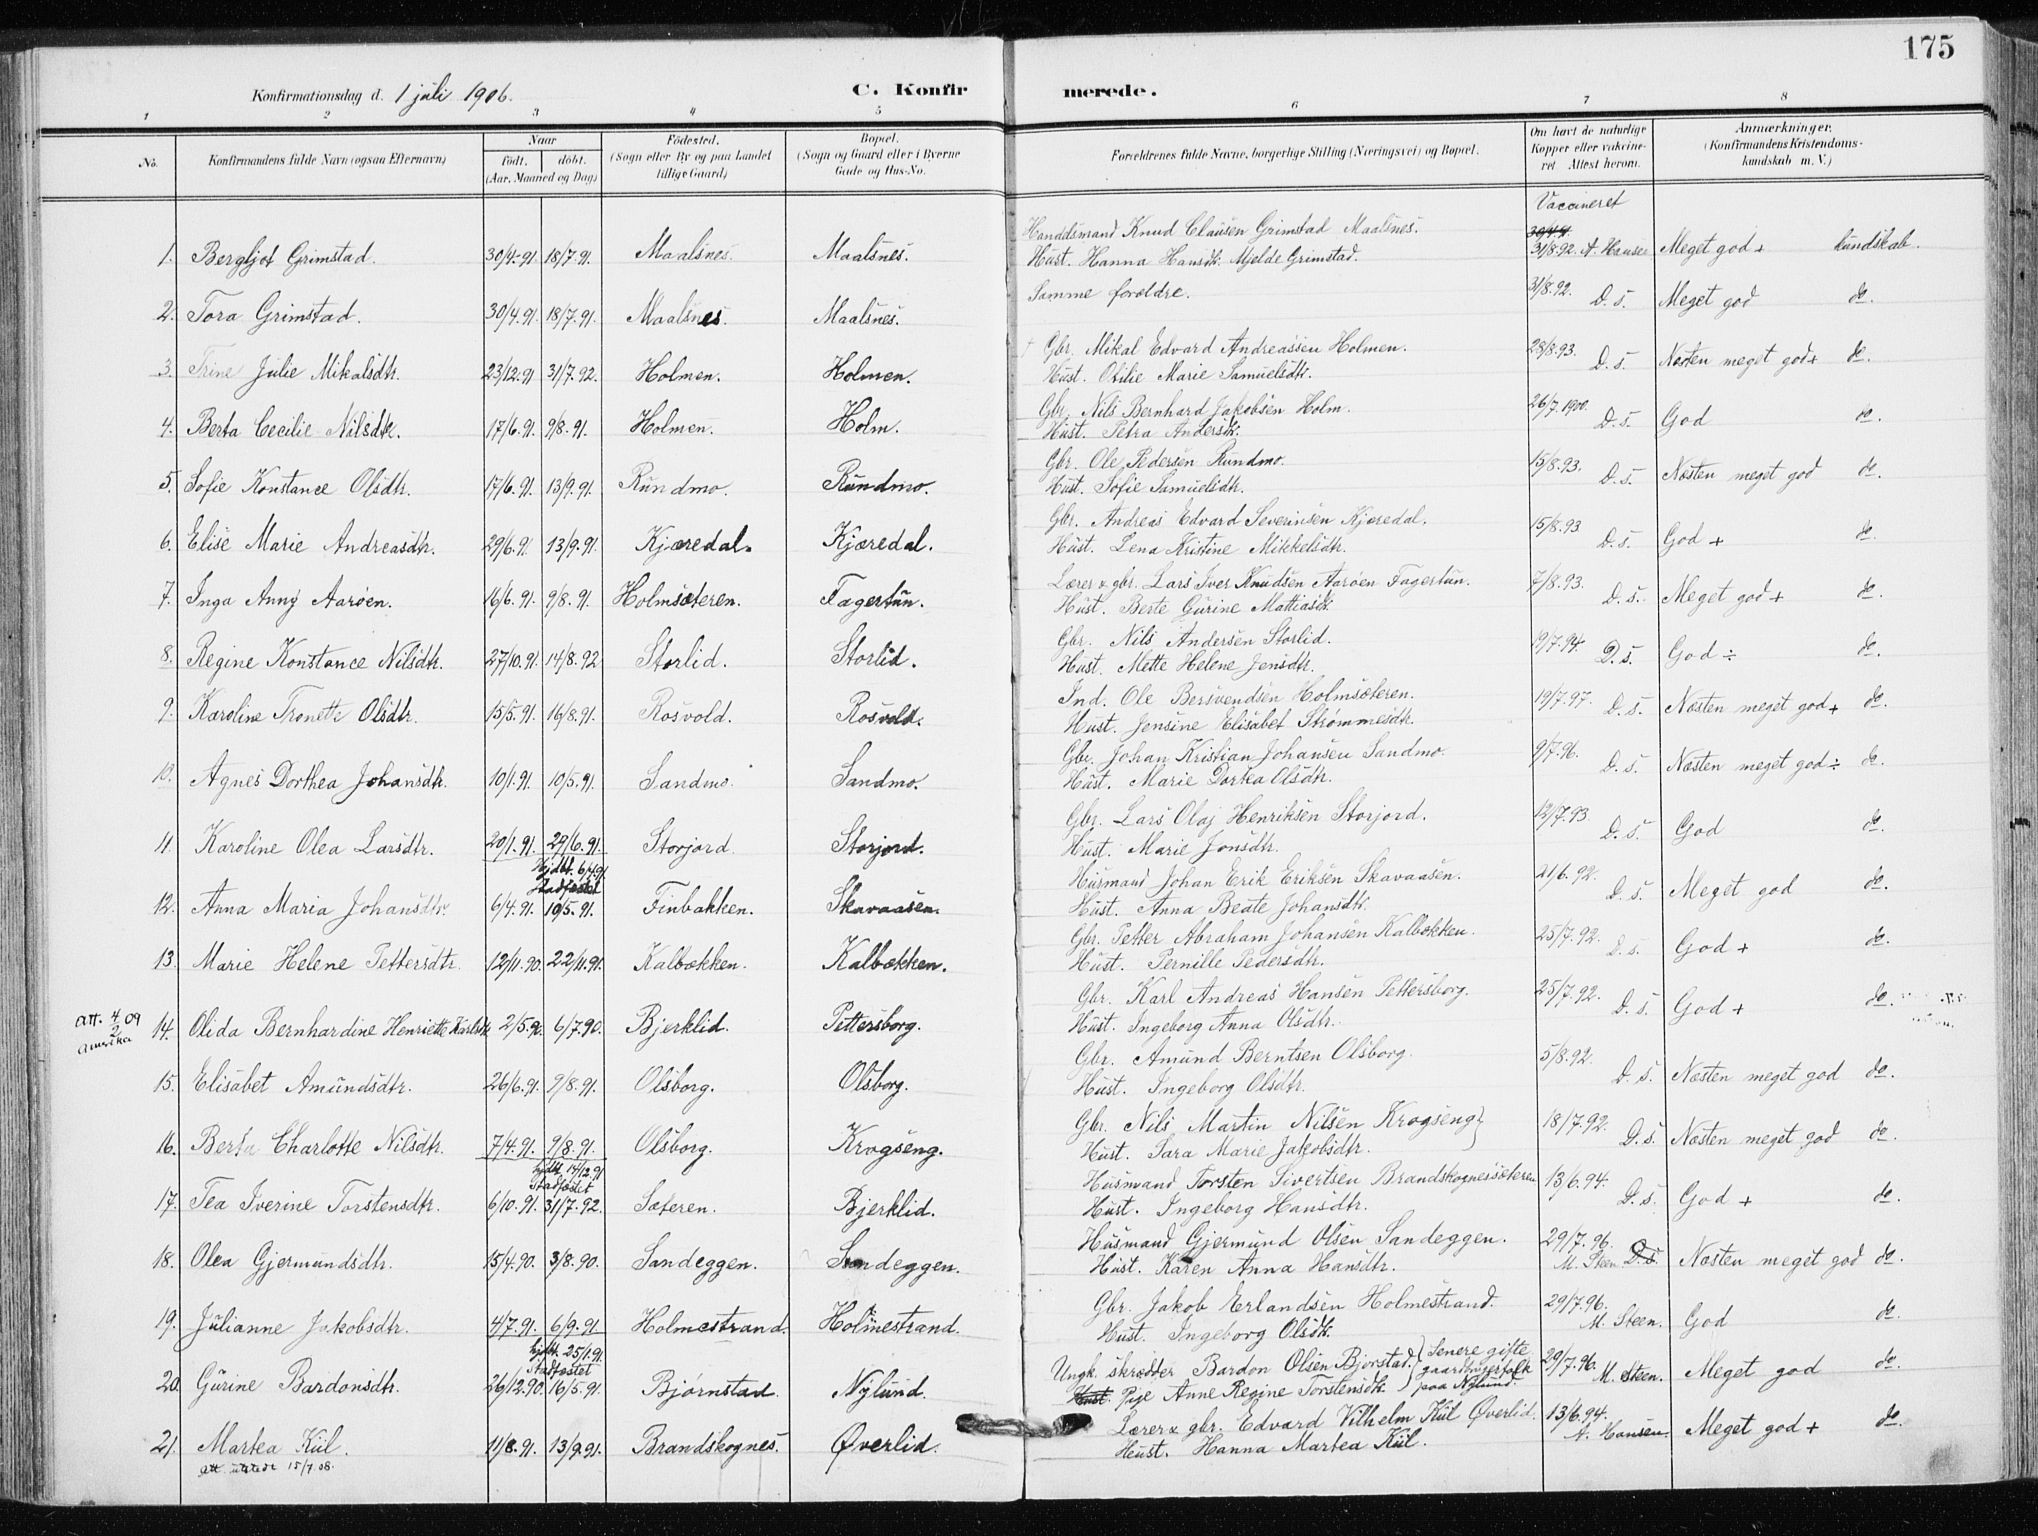 175
Konfirmationsdag d. 1 juli 1906.
C. Konfirmerede.
1 2 3 4 5 6 7 8
No.
Konfirmandens fulde Navn (ogsaa Efternavn)
Naar
født. døbt.
(Aar, Maaned og Dag)
Fødested.
(Sogn eller By og paa Landet
tillige Gaard)
Bopæl.
(Sogn og Gaard eller i Byerne
Gade og Hus-No.
Forældrenes fulde Navne, borgerlige Stilling (Næringsvei) og Bopæl.
Om havt de naturlige
Kopper eller vakcine-
ret Attest herom.
Anmærkninger.
(Konfirmandens Kristendoms-
kundskab m. V.)
Vaccineret
Handelsmand Knud Clausen Grimstad Maalsnes. 30/4 91
1. Bergljot Grimstad. 30/4.91 18/7.91. Maalsnes. Maalsnes. Hust. Hanna Hansdt. Mjelde Grimstad. 31/8.92. A. Hansen Meget god + kundskab.
2. Tora Grimstad. 30/4.91 18/7.91. Maalsnes. Maalsnes. Samme forældre. 31/8.92. D. s. Meget god do.
Gbr. Mikal Edvard Andreassen Holmen. 28/8.93.
3. Trine Julie Mikalsdtr. 23/12.91 31/7.92. Holmen. Holmen. Hust. Otilie Marie Samuelsdtr. D. s. Næsten meget god + do.
Gbr. Nils Bernhard Jakobsen Holm. 26/7.1900.
4. Berta Cecilie Nilsdtr. 17/6.91. 9/8.91. Holmen. Holm. Hust. Petra Andersdt. D. s. God do.
Gbr. Ole Pedersen Rundmo. 15/8.93.
5. Sofie Konstance Olsdtr. 17/6.91. 13/9.91. Rundmo. Rundmo. Hust. Sofie Samuelsdtr. D. s. Næsten meget god do.
Gbr. Andreas Edvard Severinsen Kjæredal. 15/8.93
6. Elise Marie Andreasdtr. 29/6.91. 13/9.91. Kjæredal. Kjæredal. Hust. Lena Kristine Mikkelsdtr. D. s. God + do.
Lærer & gbr. Lars Iver Knudsen Aarøen Fagertun. 7/8.93.
7. Inga Anny Aarøen. 16/6.91. 9/8.91. Holmsæteren. Fagertun. Hust. Berte Gurine Mattiasdt. D. s. Meget god + do.
Gbr. Nils Andersen Storlid. 19/7.94.
8. Regine Konstance Nilsdtr. 27/10.91. 14/8.92 Storlid. Storlid. Hust. Mette Helene Jensdtr. D. s. God ÷ do.
Ind. Ole Bersvendsen Holmsæteren. 19/7.97.
9. Karoline Tronette Olsdtr. 15/5.91. 16/8.91. Rosvold. Rosvold. Hust. Jensine Elisabet Strømmesdtr. D. s. Næsten meget god + do.
Gbr. Johan Kristian Johansen Sandmo. 9/7.96.
10. Agnes Dorthea Johansdtr. 10/1.91. 10/5.91. Sandmo. Sandmo. Hust. Marie Dortea Olsdtr. D. s. Næsten meget god ÷ do.
Gbr. Lars Olaj Henriksen Storjord. 12/7.93.
11. Karoline Olea Larsdtr. 20/1.91. 29/6.91. Storjord. Storjord. Hust. Marie Jonsdtr. D. s. God do.
hjdbt. 6/4 91
stadfæstet
Husmand Johan Erik Eriksen Skavaasen. 21/6.92.
12. Anna Maria Johansdtr. 6/4.91. 10/5.91. Finbakken. Skavaasen. Hust. Anna Beate Johansdt. D. s. Meget god do.
Gbr. Petter Abraham Johansen Kalbækken. 25/7.92.
13. Marie Helene Pettersdtr. 12/11.90. 22/11.91. Kalbækken. Kalbækken. Hust. Pernille Pedersdtr. D. s. God + do.
Gbr. Karl Andreas Hansen Pettersborg. 25/7.92.
Att. 4/2 09
Amerika
14. Olida Bernhardine Henriette Karlsdt. 2/5.90. 6/7.90. Bjerklid. Pettersborg. Hust. Ingeborg Anna Olsdtr. D. s. God + do.
Gbr. Amund Berntsen Olsborg. 5/8.92.
15. Elisabet Amundsdtr. 26/6.91. 9/8.91. Olsborg. Olsborg. Hust. Ingeborg Olsdtr. D. s. Næsten meget god do.
Gbr. Nils Martin Nilsen Krogseng } 18/7.92.
16. Berta Charlotte Nilsdtr. 7/4.91. 9/8.91. Olsborg. Krogseng. Hust. Sara Marie Jakobsdtr. D. s. Næsten meget god do.
hjdbt. 14/12.91
Stadfæstet
Husmand Torsten Sivertsen Brandskognessæteren 13/6.94.
17. Tea Iverine Torstensdtr. 6/10.91. 31/7.92. Sæteren. Bjerklid. Hust. Ingeborg Hansdtr. D. s. God + do.
Husmand Gjermund Olsen Sandeggen. 29/7.96.
18. Olea Gjermundsdtr. 15/4.90. 3/8.90. Sandeggen. Sandeggen. Hust. Karen Anna Hansdtr. M. Steen D. s. Næsten meget god do.
Gbr. Jakob Erlandsen Holmestrand. 29/7.96.
19. Julianne Jakobsdtr. 4/7.91. 6/9.91 Holmestrand. Holmestrand. Hust. Ingeborg Olsdt. M. Steen. God do.
hjdbt. 25/1.91.
Stadfæstet
Ungk. skrædder Bardon Olsen Bjørstad. } Senere gifte gaardbrugerfolk paa Nylund. 29/7.96.
20. Gurine Bardonsdtr. 26/12.90. 16/5.91. Bjørnstad. Nylund. Hust. Pige Anne Regine Torstensdt. M. Steen. Meget god do.
Lærer & gbr. Edvard Vilhelm Kiil Øverlid. 13/6.94.
21. Martea Kiil. 11/8.91. 13/9.91. Brandskognes. Øverlid. Hust. Hanna Martea Kiil. A. Hansen. Meget god + do.
Att. utstedt 15/7.08.